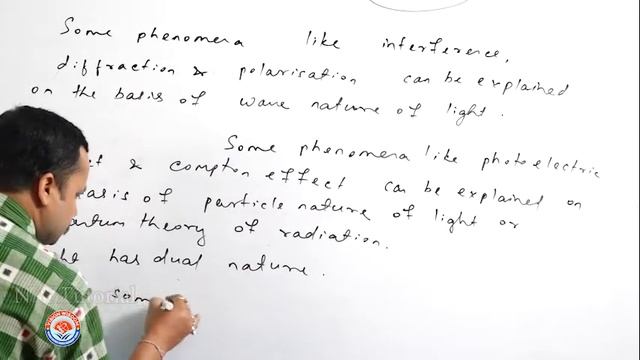 Some phenomena like interference,
diffraction & polarisation can be explained
on the basis of wave nature of light.
Some phenomena like photoelectric
& compton effect can be explained on
of particle nature of light or
theory of radiation.
has dual nature.
Som